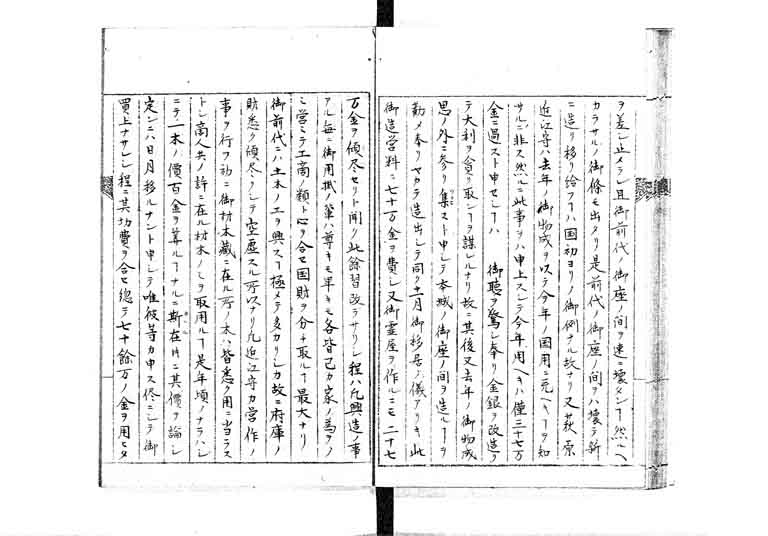 ヲ差シ止メラレ且御前代ノ御座ノ間ヲ速ニ壊タシメテ然ルヘ
カラサルノ御條モ出タリ是前代ノ御座ノ間ヲハ壊テ新
ニ造リ移リ給フ事ハ国初ヨリノ御例ナル故ナリ又荻原
近江守ハ去年ノ御物成ヲ以テ今年ノ国用ニ充ヘキヿヲ知
サルニ非ス然ルニ此事ヲハ申上スシテ今年用ヘキハ僅三十七万
金ニ過スト申セシハ 御聴ヲ驚シ奉リ金銀ヲ改造リ
テ大利ヲ貪リ取シヿヲ謀レルナリ故ニ其後又去年ノ御物成
思ノ外ニ参リ集スト申シテ本城ノ御座ノ間ヲ造ルヿヲ
勤メ奉リヤカテ造出シテ同ク十一月御移居ノ儀アリキ此
御造営料ニ七十万金ヲ費シ又御霊屋ヲ作ルニモ二十七
万金ヲ傾尽セリト聞ク此餘習改ラサリシ程ハ凡興造ノ事
アル毎ニ御用掛ノ輩ハ尊キモ卑キモ各皆己カ家ノ為ヲノ
ミ営ミテ工商ノ類ト心ヲ合セ国財ヲ分チ取ルヿ最大ナリ
御前代ニハ土木ノ工ヲ興スヿ極メテ多カリシカ故ニ府庫ノ
財悉ク傾尽クシテ空虚スル所以ナリ凡近江守カ営作ノ
事ヲ行フ初ニ御材木蔵ニ在ル所ノ木ハ皆悉ク用ニ当ラス
トシ商人共ノ許ニ在ル材木ノミヲ取用ルヿ是年頃ノナラハシ
ニテ一本ノ價百金ヲ算ルヿナルニ斯在片ニ其價ヲ論シ
定ンニハ日月移ルナント申シテ唯彼等カ申ス侭ニシテ御
買上ナサレシ程ニ其功費ヲ合セ總テ七十餘万ノ金ヲ用ヒタ